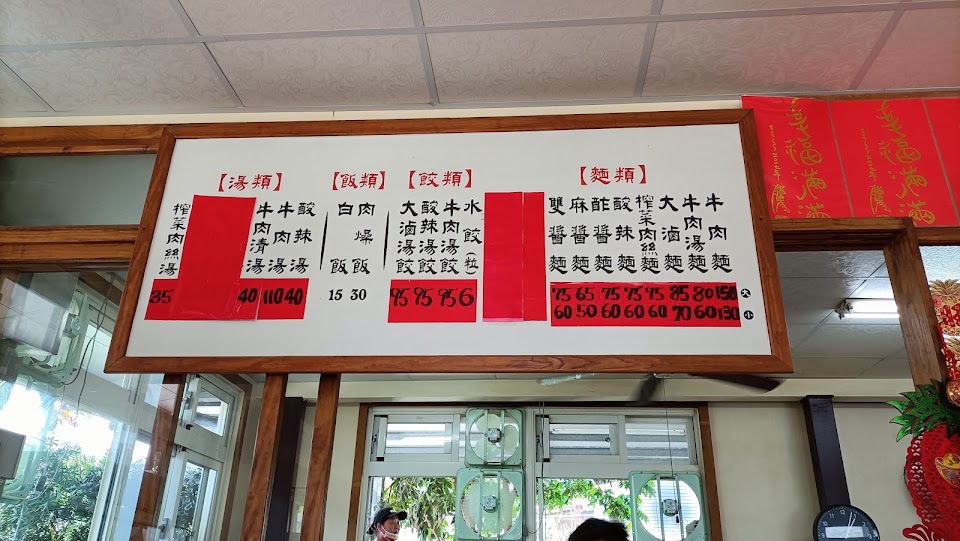 【麵類】
牛肉麵 大150 小130
牛肉湯麵 80 60
大滷麵 85 70
榨菜肉絲麵 75 60
酸辣麵 75 60
酢醬麵 75 60
麻醬麵 65 50
雙醬麵 75 60
【餃類】
水餃(粒) 6
牛肉湯餃 95
酸辣湯餃 95
大滷湯餃 95
【飯類】
肉燥飯 30
白飯 15
【湯類】
酸辣湯 40
牛肉湯 110
牛肉清湯 40
榨菜肉絲湯 85
幸福滿滿
幸福滿滿